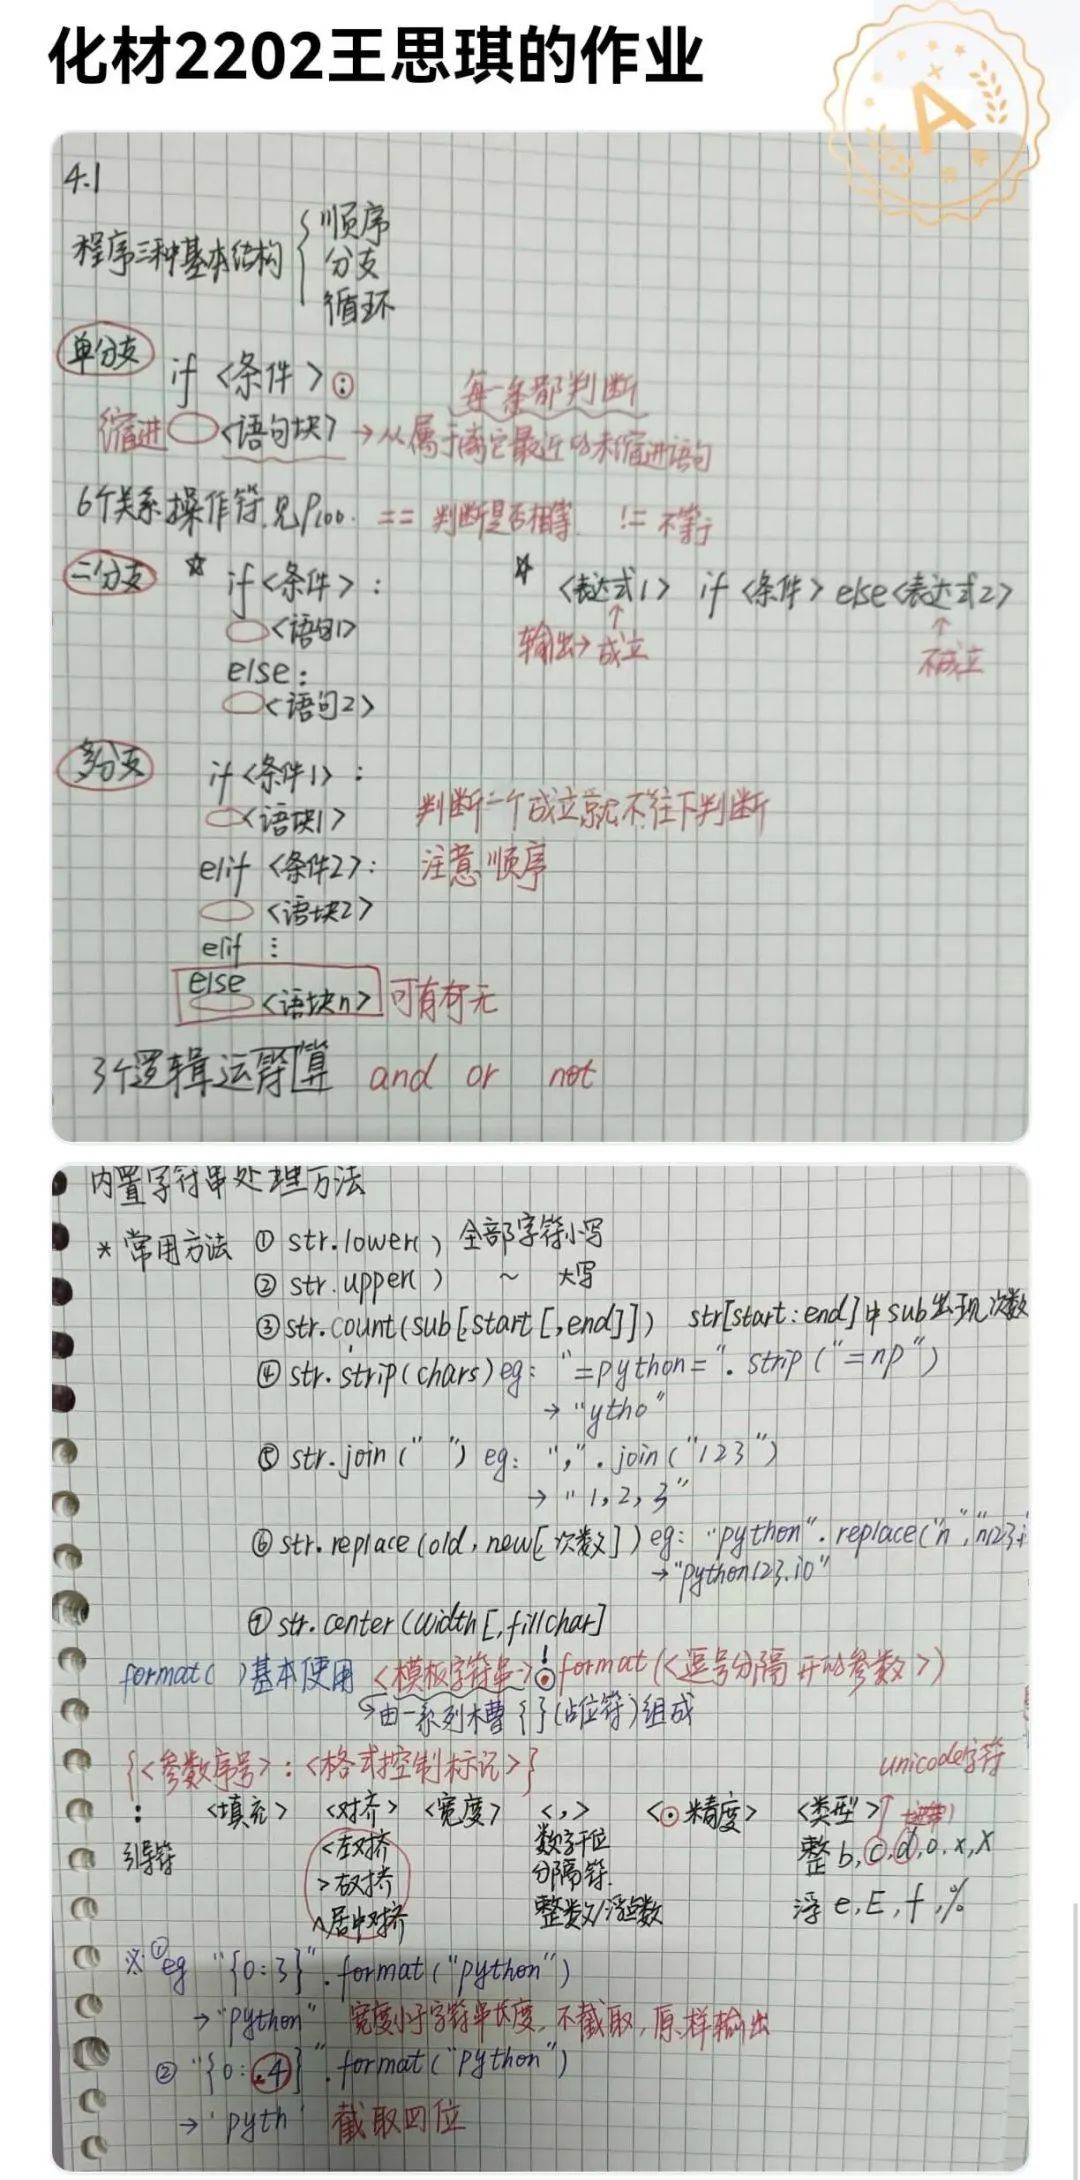 化材2202王思琪的作业
A
4.1
程序三种基本结构 { 顺序
分支
循环
单分支 if <条件>: 每一条都判断
缩进 <语句块> → 从属于离它最近的未缩进语句
6个关系操作符.见P100. == 判断是否相等. != 不等于
二分支 ☆ if <条件>: ☆ <表达式1> if <条件> else <表达式2>
<语句1> 输出→成立 不成立
else:
<语句2>
多分支 if <条件1>:
<语块1> 判断一个成立就不往下判断
elif <条件2>: 注意顺序
<语块2>
elif ⋮
else
<语块n> 可有可无
3个逻辑运符算 and or not
内置字符串处理方法
* 常用方法 ① str.lower() 全部字符小写
② str.upper() ~ 大写
③ str.count(sub[,start[,end]]) str[start:end]中sub出现次数
④ str.strip(chars) eg: "=python=".strip("=np")
→ "ytho"
⑤ str.join(" ") eg: ",".join("123")
→ "1,2,3"
⑥ str.replace(old,new[,次数]) eg: "python".replace("n","n123.i
→"python123.io"
⑦ str.center(width[,fillchar]
format()基本使用 <模板字符串>.format(<逗号分隔开的参数>)
由一系列木槽{}(占位符)组成
{<参数序号>:<格式控制标记>} unicode字符
: <填充> <对齐> <宽度> <,> <.精度> <类型>
引导符 <左对齐 数字千位 整 b,c,d,o,x,X
>右对齐 分隔符.
^居中对齐 整数/浮点数 浮 e,E,f,%
※①eg "{0:3}".format("python")
→"python" 宽度小于字符串长度,不截取,原样输出
② "{0:.4}".format("python")
→'pyth' 截取四位